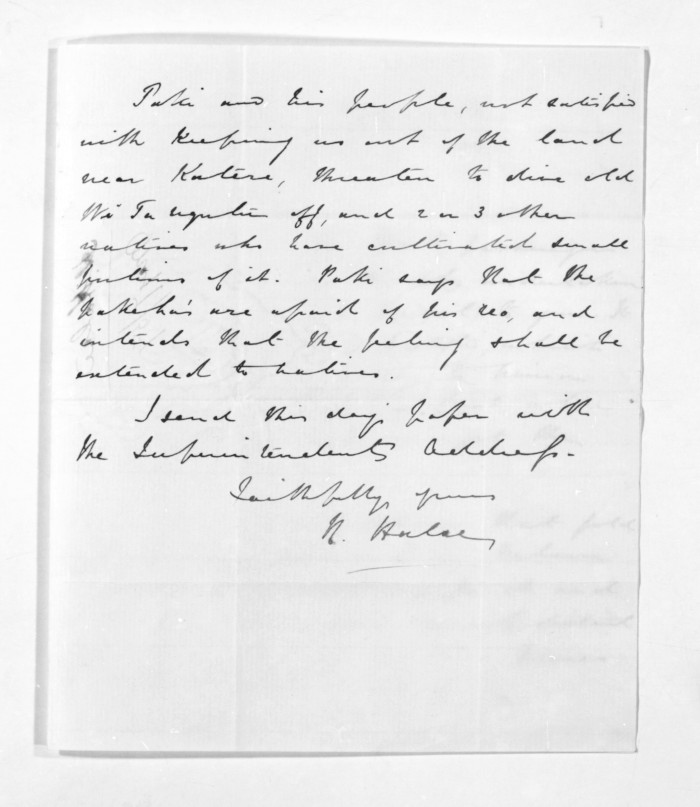 Poki and his people, not satisfied
with keeping us out of the land
near Katere, threaten to drive old
Wi Ta and 2 or 3 other
natives who have cultivated small
portions of it. Poki says that the
Pakeha's are afraid of his reo, and
intends that the feeling shall be
extended to natives.
I send this days paper with
the Superintendents Address.
Faithfully yours
H. Halse